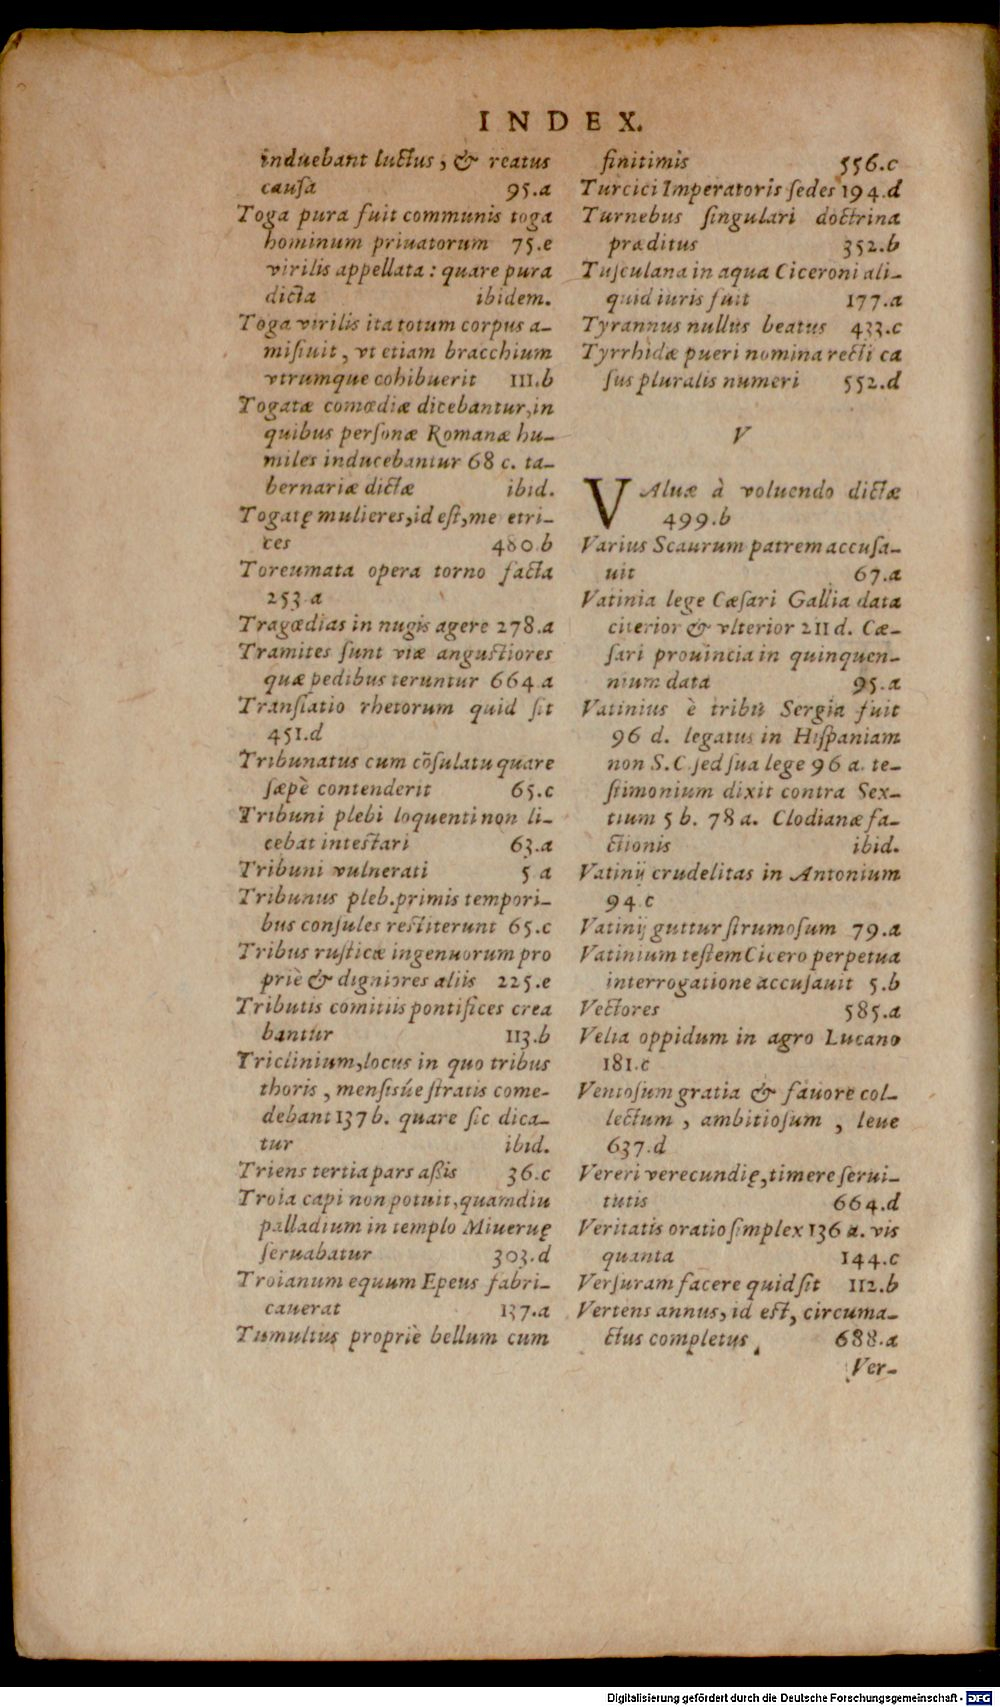 INDEX.
induebant luctus, & reatus
causa 95.a
Toga pura fuit communis toga
hominum priuatorum 75.e
virilis appellata: quare pura
dicta ibidem.
Toga virilis ita totum corpus a-
misiuit, vt etiam bracchium
vtrumque cohibuerit 111.b
Togatæ comœdiæ dicebantur, in
quibus personæ Romanæ hu-
miles inducebantur 68 c. ta-
bernariæ dictæ ibid.
Togatę mulieres, id est, me etri-
ces 480.b
Toreumata opera torno facta
253 a
Tragœdias in nugis agere 278.a
Tramites sunt viæ angustiores
quæ pedibus teruntur 664.a
Translatio rhetorum quid sit
451.d
Tribunatus cum cõsulatu quare
sæpè contenderit 65.c
Tribuni plebi loquenti non li-
cebat intestari 63.a
Tribuni vulnerati 5 a
Tribunus pleb. primis tempori-
bus consules restiterunt 65.c
Tribus rusticæ ingenuorum pro
priè & digniores aliis 225.e
Tributis comitiis pontifices crea
bantur 113.b
Triclinium, locus in quo tribus
thoris, mensisúe stratis come-
debant 137 b. quare sic dica-
tur ibid.
Triens tertia pars aßis 36.c
Troia capi non potuit, quamdiu
palladium in templo Miueruę
seruabatur 303.d
Troianum equum Epeus fabri-
cauerat 137.a
Tumultus propriè bellum cum
finitimis 556.c
Turcici Imperatoris sedes 194.d
Turnebus singulari doctrina
præditus 352.b
Tusculana in aqua Ciceroni ali-
quid iuris fuit 177.a
Tyrannus nullus beatus 433.c
Tyrrhidæ pueri nomina recti ca
sus pluralis numeri 552.d
V
VAluæ à voluendo dictæ
499.b
Varius Scaurum patrem accusa-
uit 67.a
Vatinia lege Cæsari Gallia data
citerior & vlterior 211 d. Cæ-
sari prouincia in quinquen-
nium data 95.a
Vatinius è tribu Sergia fuit
96 d. legatus in Hispaniam
non S.C. sed sua lege 96 a. te-
stimonium dixit contra Sex-
tium 5 b. 78 a. Clodianæ fa-
ctionis ibid.
Vatinij crudelitas in Antonium
94 c
Vatinij guttur strumosum 79.a
Vatinium testem Cicero perpetua
interrogatione accusauit 5.b
Vectores 585.a
Velia oppidum in agro Lucano
181.c
Ventosum gratia & fauore col-
lectum, ambitiosum, leue
637.d
Vereri verecundię, timere serui-
tutis 664.d
Veritatis oratio simplex 136 a. vis
quanta 144.c
Versuram facere quid sit 112.b
Vertens annus, id est, circuma-
ctus completus 688.a
Ver-
Digitalisierung gefördert durch die Deutsche Forschungsgemeinschaft - DFG